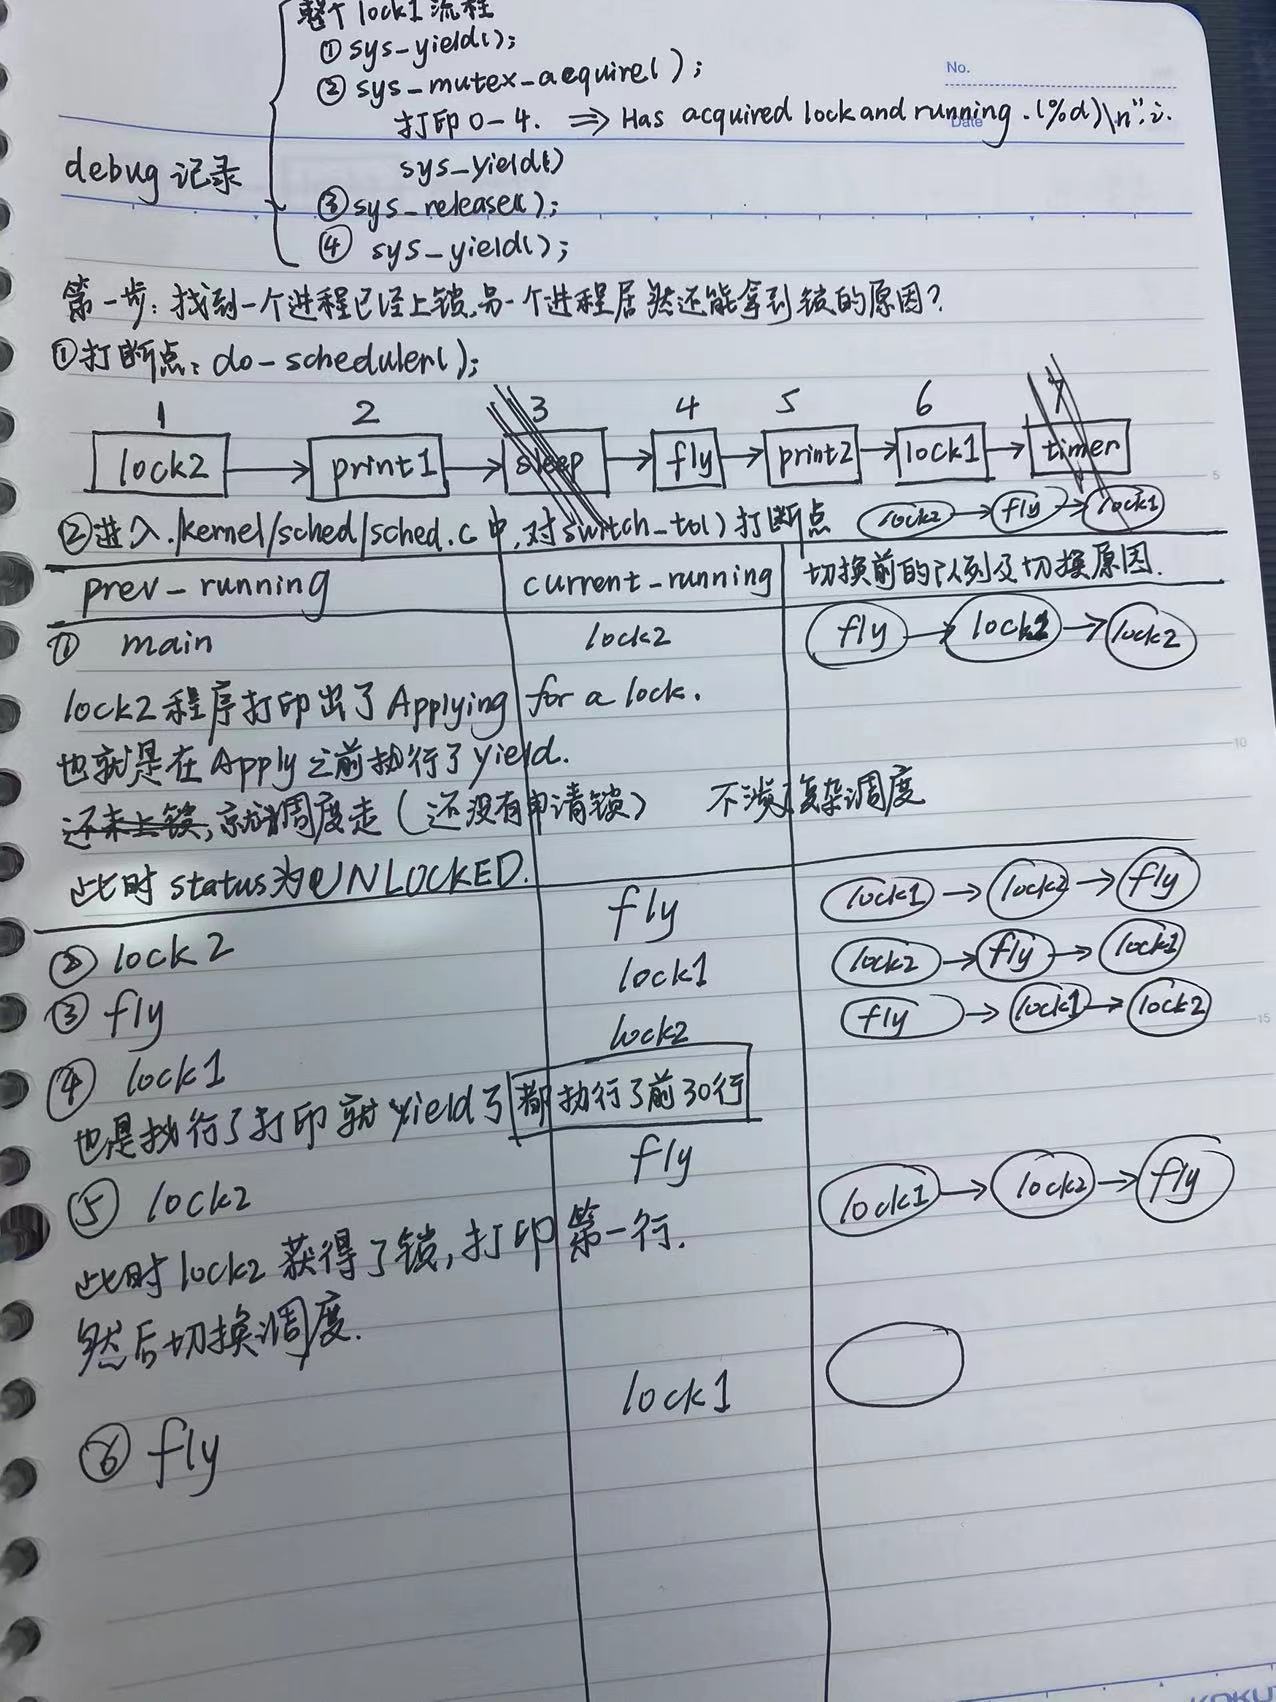 整个lock1流程
① sys_yield();
② sys_mutex_acquire();
打印0-4. ⇒ Has acquired lock and running.(%d)\n", i.
sys_yield()
③ sys_release();
④ sys_yield();
debug 记录
No.
Date
第一步：找到一个进程已经上锁,另一个进程居然还能拿到锁的原因?
①打断点: do-scheduler();
1 2 3 4 5 6 7
lock2 → print1 → sleep → fly → print2 → lock1 → timer
②进入./kernel/sched/sched.c中,对switch_to()打断点 lock2 → fly → lock1
prev-running current-running 切换前的队列及切换原因.
① main lock2 fly → lock1 → lock2
lock2程序打印出了Applying for a lock.
也就是在Apply之前执行了yield.
还未上锁,就调度走(还没有申请锁) 不涉及复杂调度
此时status为UNLOCKED.
② lock2 fly lock1 → lock2 → fly
③ fly lock1 lock2 → fly → lock1
④ lock1 lock2 fly → lock1 → lock2
也是执行了打印就yield了 都执行了前30行
⑤ lock2 fly lock1 → lock2 → fly
此时lock2获得了锁,打印第一行.
然后切换调度.
⑥ fly lock1
5
10
15